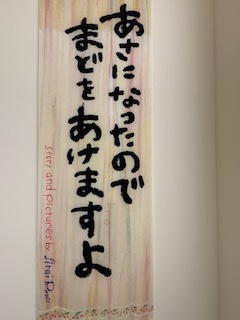 あさになったので
まどをあけますよ
Story and pictures by Arai Ryoji